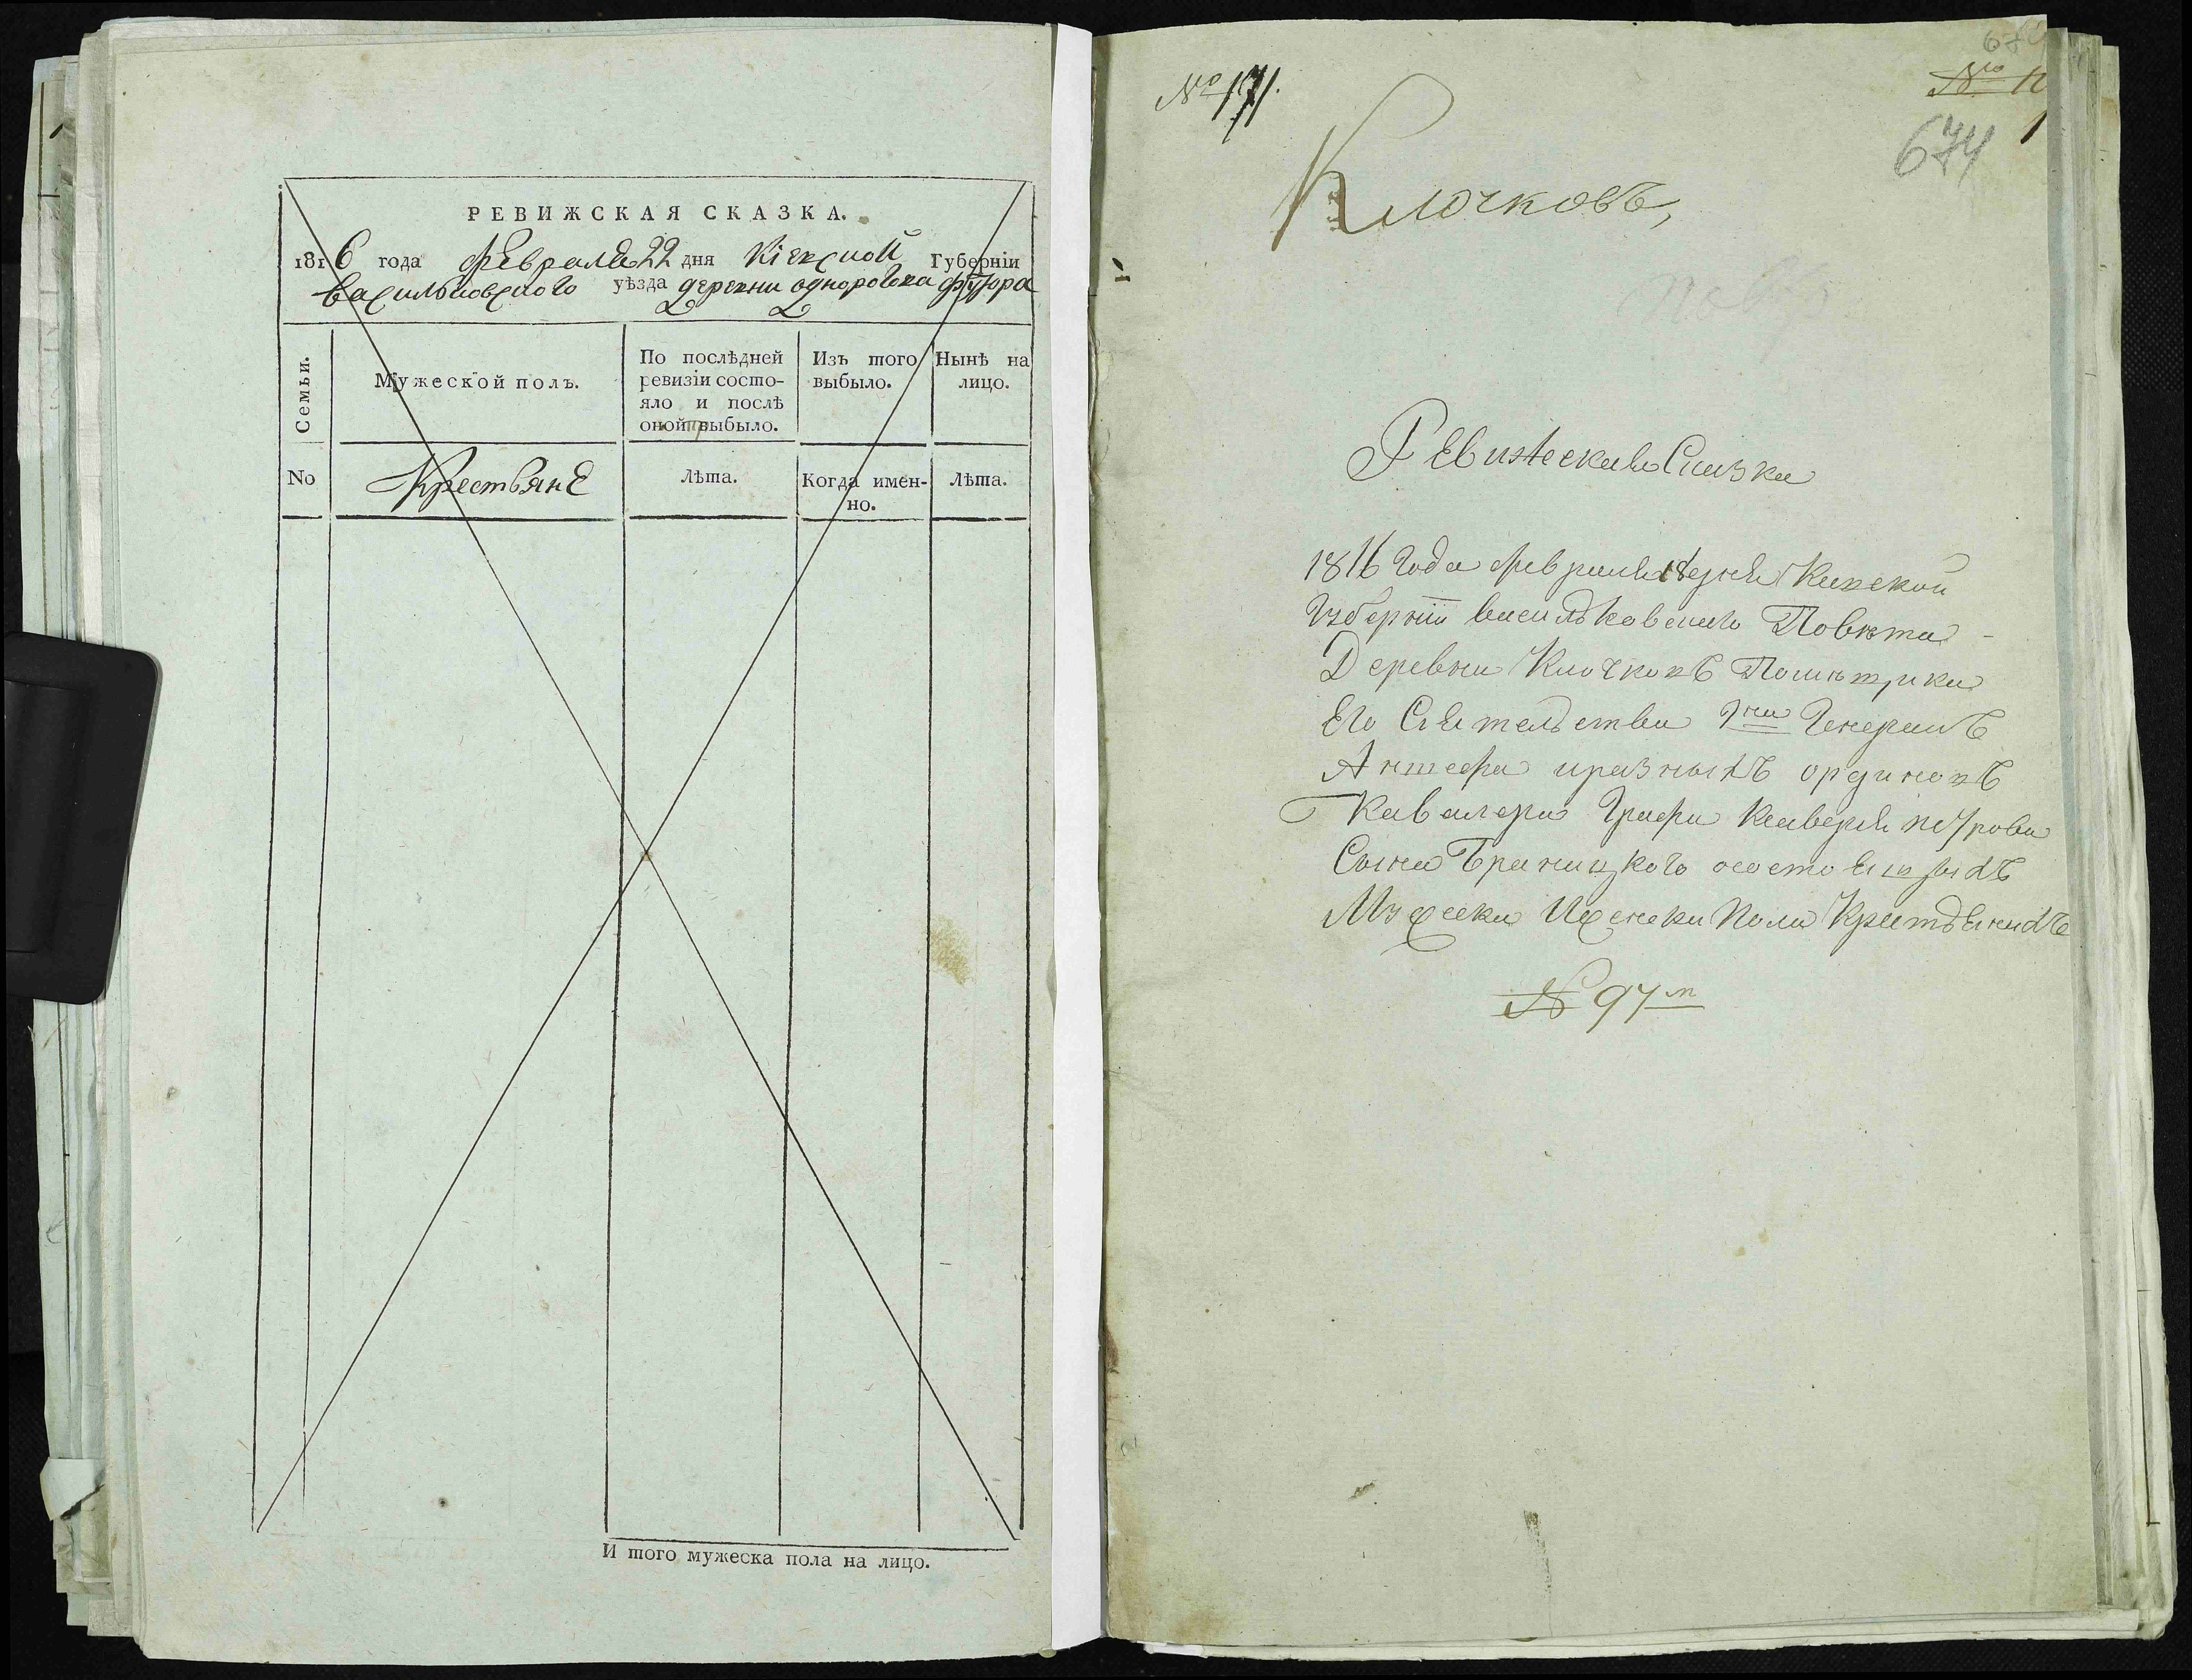 РЕВИЖСКАЯ СКАЗКА.
1816 года февраля 22 дня Кіевской Губерніи
васильковского уѣзда деревни одноровока футора
Семьи.
Мужеской полъ.
По послѣдней ревизіи состо-
яло и послѣ оной прибыло.
Изъ того выбыло.
Нынѣ на лицо.
No
Крестьяне
Лѣта.
Когда имен-
но.
Лѣта.
И того мужеска пола на лицо.
№ 171.
№ 12
1
674
Клочковъ,
Ревижскаја Сказка
1816 Года февраля 18 дня Киевской
Губернии васильковского Повѣта
Деревни Клочковъ Помѣщика
Его Сіятельства Гна Генералъ
Аншефа иразныхъ ординовъ
Кавалера Графа Ксаверія петрова
Сына Браницкого осостоящихъ
Мужеска Иженска Пола Крестьянахъ
№ 97м